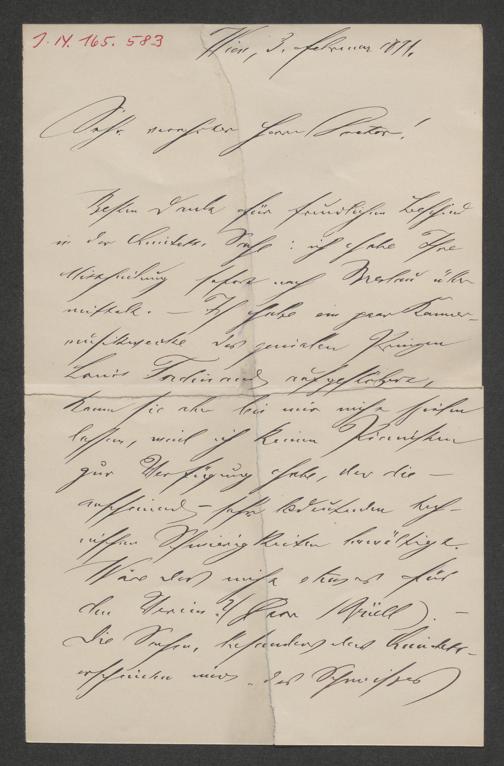 J. N. 165. 583
Wien, 3. Februar 1891.
Sehr verehrter Herr Doctor!
Besten Dank für freundlichen Bescheid
in der Quintett-Sache: ich habe Ihre
Mittheilung sofort nach Breslau über-
mittelt. — Ich habe ein paar Kammer-
musikwerke des genialen Prinzen
Louis Ferdinand aufgestöbert,
kann sie aber bei mir nicht spielen
lassen, weil ich keinen Pianisten
zur Verfügung habe, der die —
anscheinend — sehr bedeutenden tech-
nischen Schwierigkeiten bewältigt.
Wäre das nicht etwas für
den Verein? (Herr Brüll). —
Die Sachen, besonders das Quintett
erscheinen mir des Schweißes